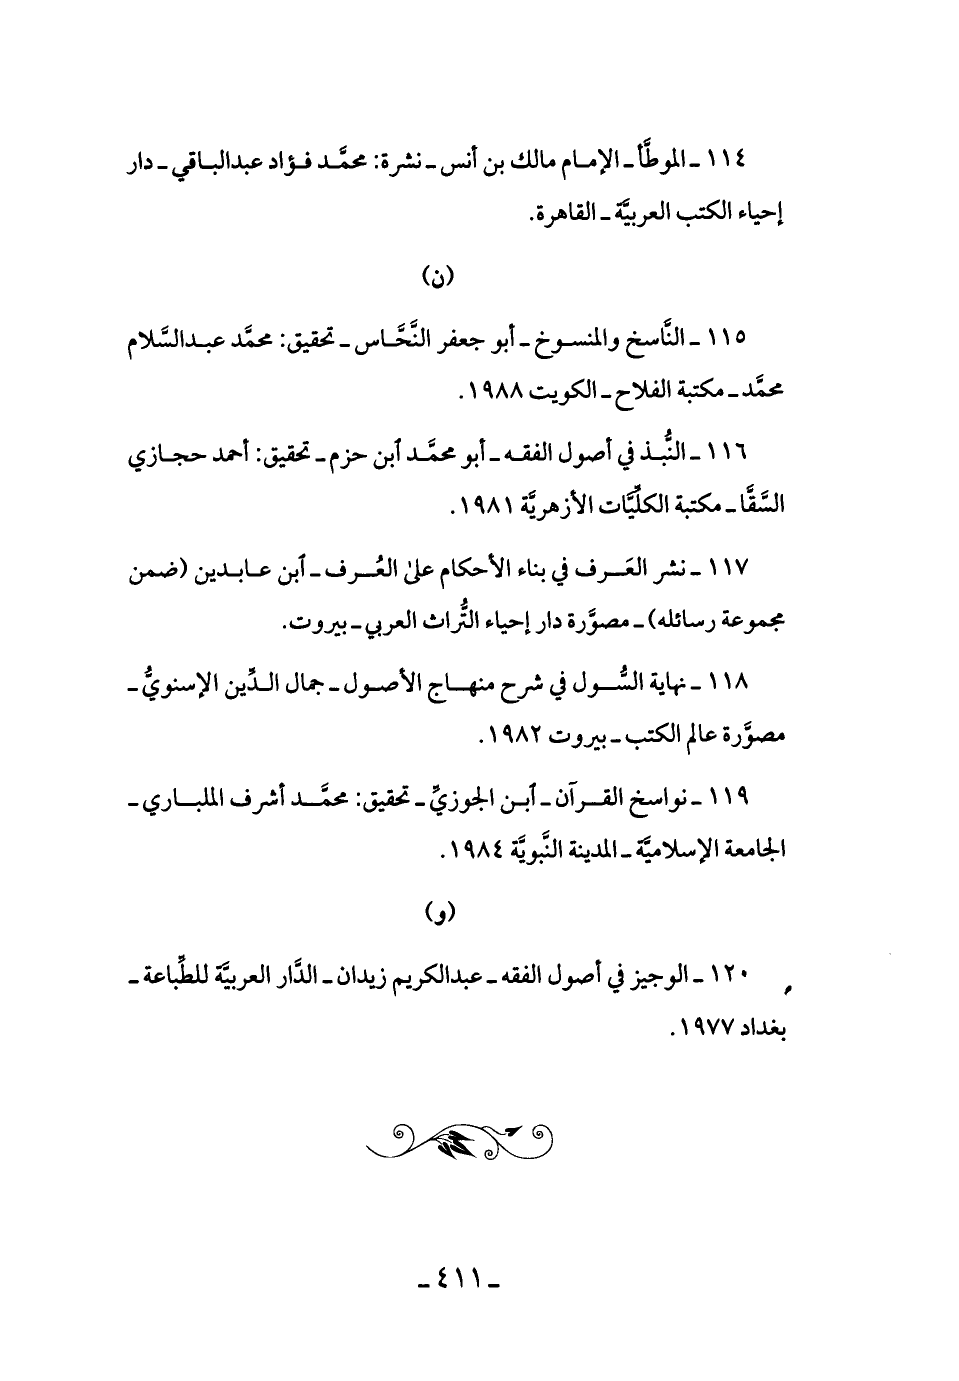 ١١٤ ـ الموطَّأ ـ الإمـام مالك بن أنس ـ نشرة: محمَّـد فـؤاد عبدالبـاقي ـ دار
إحياء الكتب العربيَّة ـ القاهرة.
(ن)
١١٥ ـ النَّاسخ والمنسـوخ ـ أبو جعفر النَّحَّـاس ـ تحقيق: محمَّد عبـدالسَّلام
محمَّد ـ مكتبة الفلاح ـ الكويت ١٩٨٨.
١١٦ ـ النُّبـذ في أصول الفقـه ـ أبو محمَّـد ٱبن حزم ـ تحقيق: أحمد حجـازي
السَّقَّا ـ مكتبة الكلِّيَّات الأزهريَّة ١٩٨١.
١١٧ ـ نشر العَـرف في بناء الأحكام علىٰ العُـرف ـ ٱبن عـابـدين (ضمن
مجموعة رسائله) ـ مصوَّرة دار إحياء التُّراث العربي ـ بيروت.
١١٨ ـ نهاية السُّـول في شرح منهـاج الأصـول ـ جمال الـدِّين الإسنويُّ ـ
مصوَّرة عالم الكتب ـ بيروت ١٩٨٢.
١١٩ ـ نواسخ القـرآن ـ ٱبـن الجوزيِّ ـ تحقيق: محمَّـد أشرف الملبـاري ـ
الجامعة الإسلاميَّة ـ المدينة النَّبويَّة ١٩٨٤.
(و)
١٢٠ ـ الوجيز في أصول الفقه ـ عبدالكريم زيدان ـ الدَّار العربيَّة للطِّباعة ـ
بغداد ١٩٧٧.
ـ ٤١١ ـ